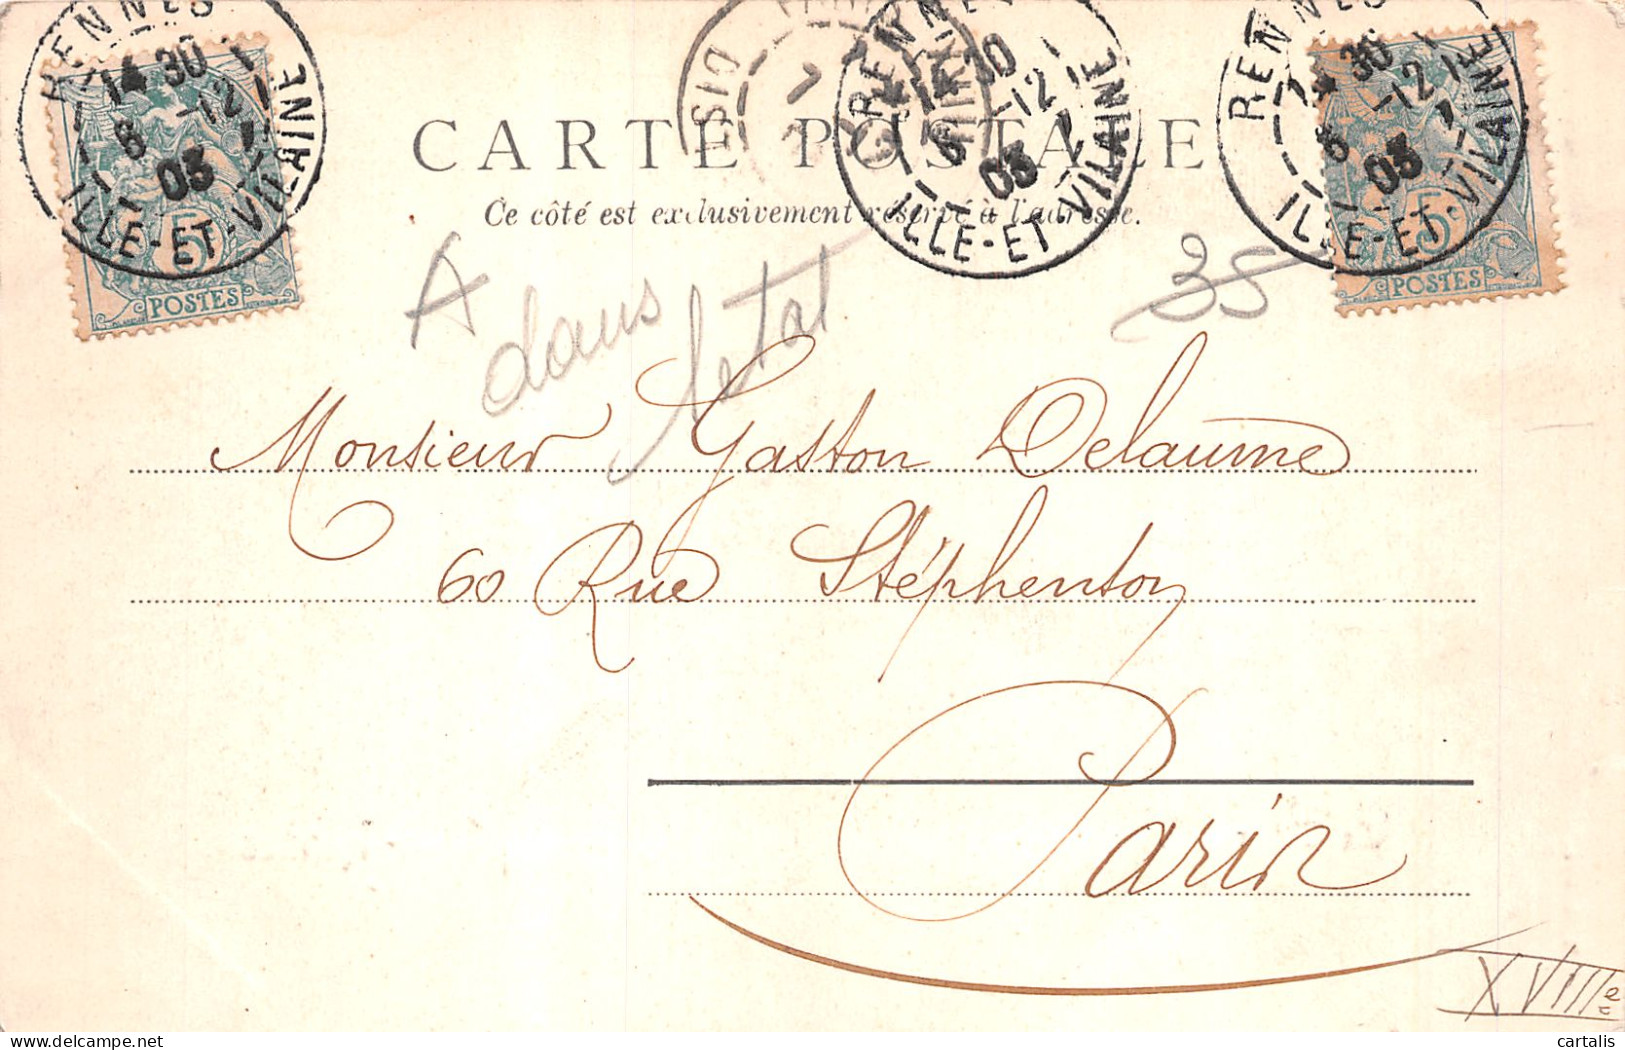 RENNES
14 30
6 -12
03
ILLE-ET-VILAINE
5
POSTES
DIST
RENNES
14 30
6 -12
03
ILLE-ET-VILAINE
RENNES
30
6 -12
03
ILLE-ET-VILAINE
5c
POSTES
CARTE POSTALE
Ce côté est exclusivement réservé à l'adresse.
A
dans
letat
35
Monsieur Gaston Delaume
60 Rue Stéphenson
Paris
XVIIIe
cartalis